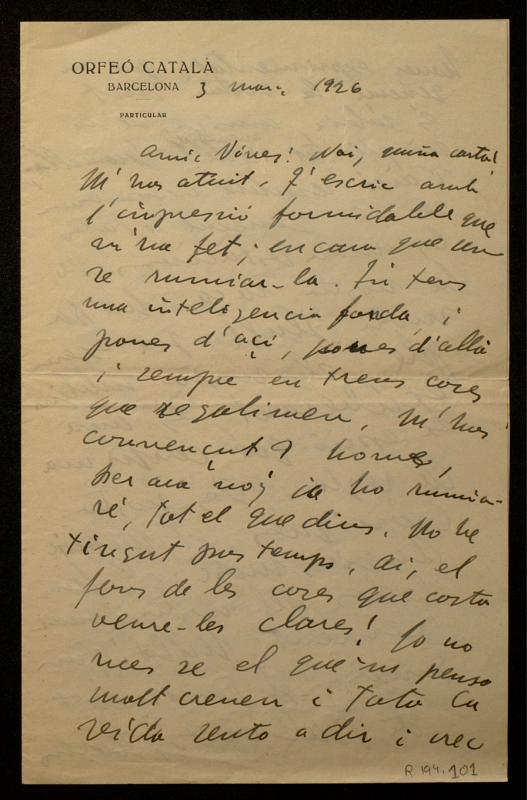 ORFEÓ CATALÀ
BARCELONA 3 març 1926
PARTICULAR
Amic Vines! Noi, quina carta!
M'has atuit. T'escric amb
l'impresió formidable que
m'ha fet; encara que
se rumiar-la. Tu tens
una inteligencia fonda, i
poues d'açí, poues d'allà
i sempre en treus coses
que regalimen. M'has
convençut? home,
per ara noi ja ho rumia-
ré, tot el que dius. No he
tingut pas temps. Ai, el
fons de les coses que costa
veure-les clares! Jo no
mes se el que'm penso
molt creuen i tota la
vida sento a dir i crec
R 194.101